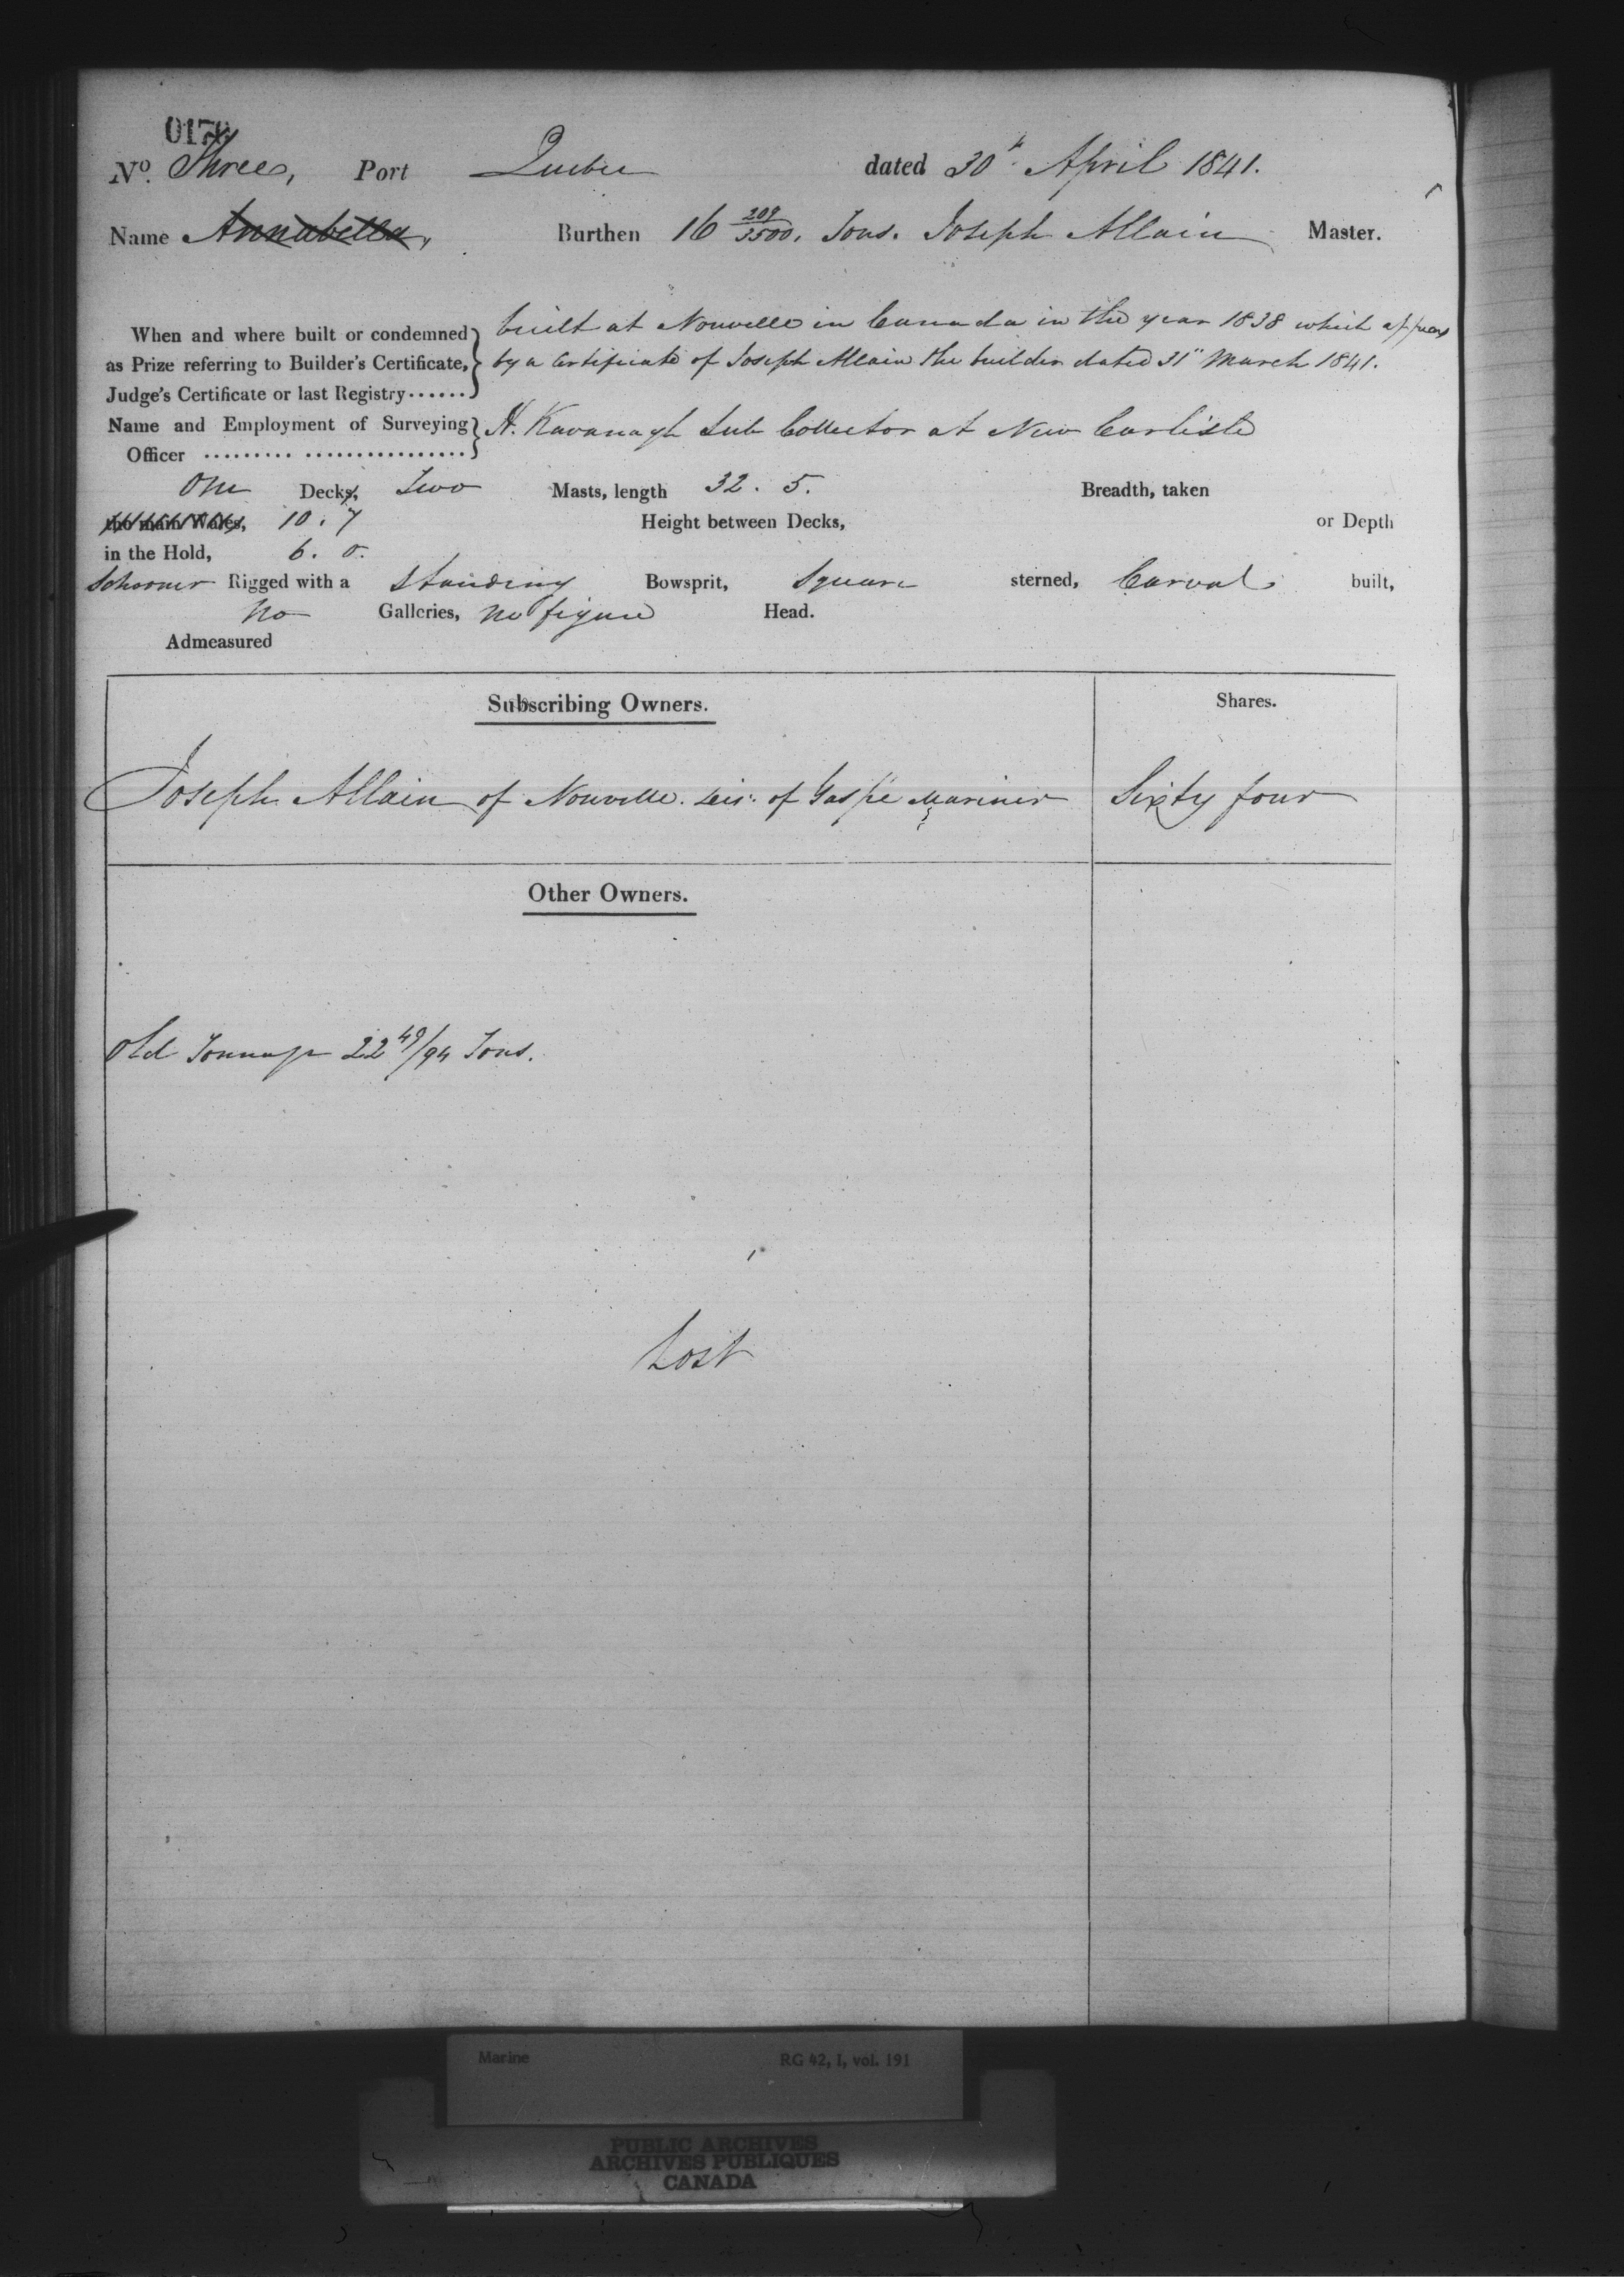 0170
No. Three, Port Quebec dated 30th April 1841.
Name Annabella, Burthen 16 209/3500, Tons. Joseph Allain Master.
When and where built or condemned as Prize referring to Builder's Certificate, Judge's Certificate or last Registry......
built at Nouvelle in Canada in the year 1838 which appears
by a Certificate of Joseph Allain the builder dated 31" March 1841.
Name and Employment of Surveying Officer ......... ................
H. Kavanagh Sub Collector at New Carlisle
One Decks, Two Masts, length 32. 5. Breadth, taken
the main Wales, 10. 7 Height between Decks, or Depth
in the Hold, 6. 0.
Schooner Rigged with a Standing Bowsprit, Square sterned, Carval built,
No Galleries, no figure Head.
Admeasured
Subscribing Owners. Shares.
Joseph Allain of Nouvelle. Dis: of Gaspé Mariner Sixty four
Other Owners.
Old Tonnage 22 49/94 Tons.
Lost
Marine RG 42, I, vol. 191
PUBLIC ARCHIVES
ARCHIVES PUBLIQUES
CANADA